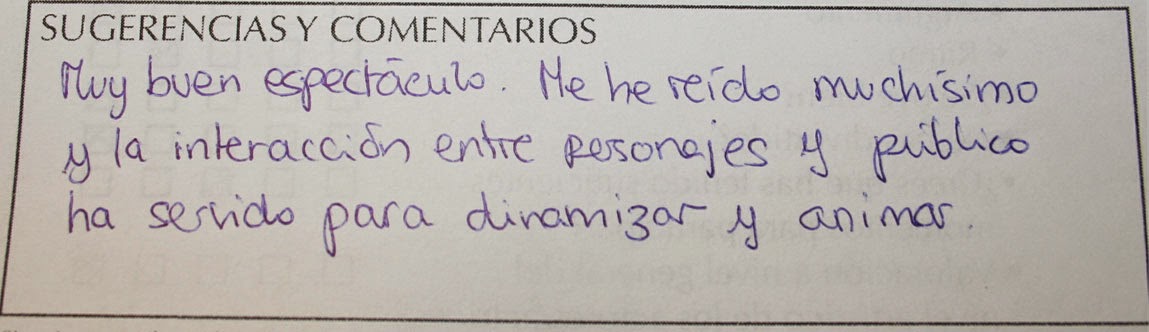 SUGERENCIAS Y COMENTARIOS
Muy buen espectáculo. Me he reído muchísimo
y la interacción entre pesonajes y público
ha servido para dinamizar y animar.